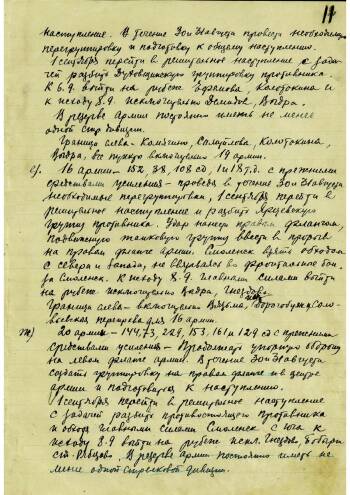 11
наступление. В течение 30 и 31 августа провести необходимую
перегруппировку и подготовку к общему наступлению.
1 сентября перейти в решительное наступление с зада-
чей разбить Духовщинскую группировку противника.
К 6.9. выйти на рубеж Ефимова, Колоткина и
к исходу 8.9. исключительно Демидов, Вадра.
В резерве армии постоянно иметь не менее
одной стр. дивизии.
Граница слева – Самуйлова, Колоткина,
Вадра, все пункты включительно 19 армии.
е). 16 армии – 152, 38, 108 сд, 1 и 18 т.д. с прежними
средствами усиления – проведя в течение 30 и 31 августа
необходимые перегруппировки, 1 сентября перейти в
решительное наступление и разбить Ярцевскую
группу противника. Удар нанести правым флангом,
подвижную танковую группу ввести в прорыв
на правом фланге армии. Смоленск взять обходом
с севера и запада, не ввязываясь во фронтальные бои
за Смоленск. К исходу 8.9. главными силами выйти
на рубеж исключительно Вадра, Гнездово.
Граница слева – включительно Вязьма, Дорогобуж, Соло-
вьевская переправа для 16 армии.
ж) 20 армии – 144, 73, 229, 153, 161 и 129 сд с прежними
средствами усиления – Продолжать упорную оборону
на левом фланге армии. В течение 30 и 31 августа
создать группировку на правом фланге и в центре
армии и подготовиться к наступлению.
1 сентября перейти в решительное наступление
с задачей разбить противостоящего противника
и обходя главными силами Смоленск с юга к
исходу 8.9 выйти на рубеж искл. Гнездово,
ст. Рябцево. В резерве армии постоянно иметь не
менее одной стрелковой дивизии.